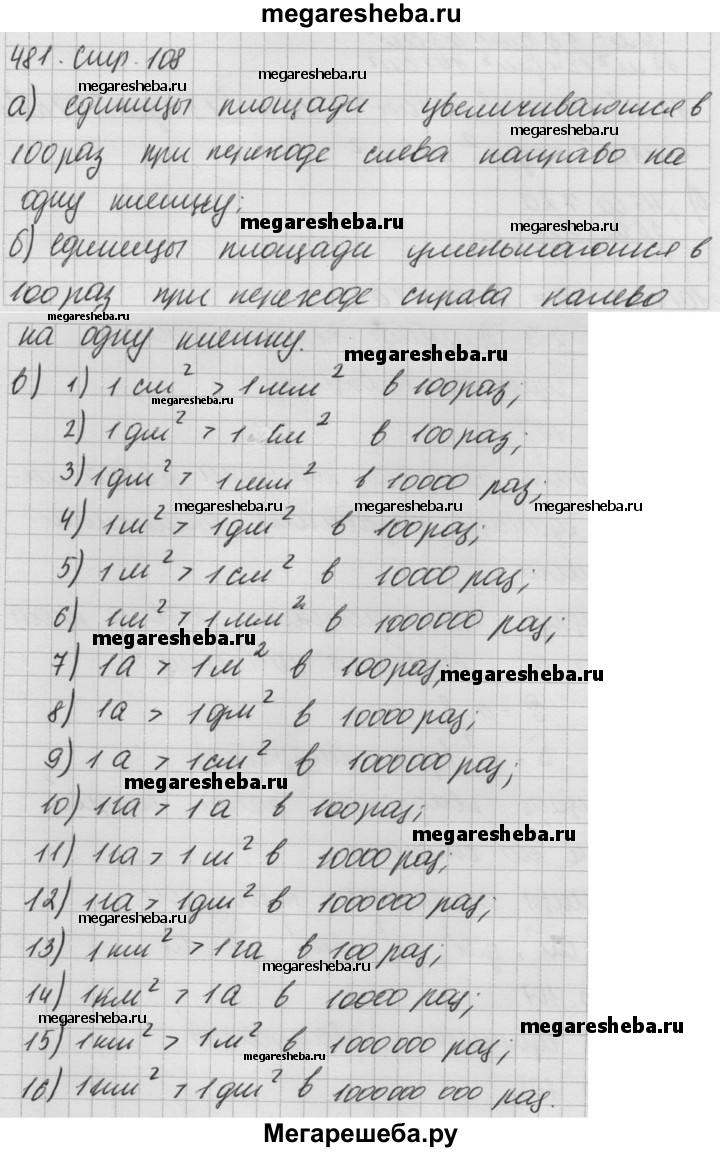 megaresheba.ru
481. Стр. 108
megaresheba.ru megaresheba.ru
а) единицы площади увеличиваются в
megaresheba.ru
100 раз при переходе слева направо на
одну клетку;
megaresheba.ru megaresheba.ru
б) единицы площади уменьшаются в
100 раз при переходе справа налево
megaresheba.ru
на одну клетку.
megaresheba.ru
в) 1) 1 см² > 1 мм² в 100 раз;
megaresheba.ru
2) 1 дм² > 1 см² в 100 раз;
3) 1 дм² > 1 мм² в 10000 раз;
megaresheba.ru megaresheba.ru megaresheba.ru
4) 1 м² > 1 дм² в 100 раз;
5) 1 м² > 1 см² в 10000 раз;
6) 1 м² > 1 мм² в 1000000 раз;
megaresheba.ru
7) 1 а > 1 м² в 100 раз;
megaresheba.ru
8) 1 а > 1 дм² в 10000 раз;
9) 1 а > 1 см² в 1000000 раз;
megaresheba.ru
10) 1 га > 1 а в 100 раз;
megaresheba.ru
11) 1 га > 1 м² в 10000 раз;
12) 1 га > 1 дм² в 1000000 раз;
megaresheba.ru
13) 1 км² > 1 га в 100 раз;
megaresheba.ru
14) 1 км² > 1 а в 10000 раз;
megaresheba.ru megaresheba.ru
15) 1 км² > 1 м² в 1000000 раз;
megaresheba.ru
16) 1 км² > 1 дм² в 1000000 000 раз.
Мегарешеба.ру